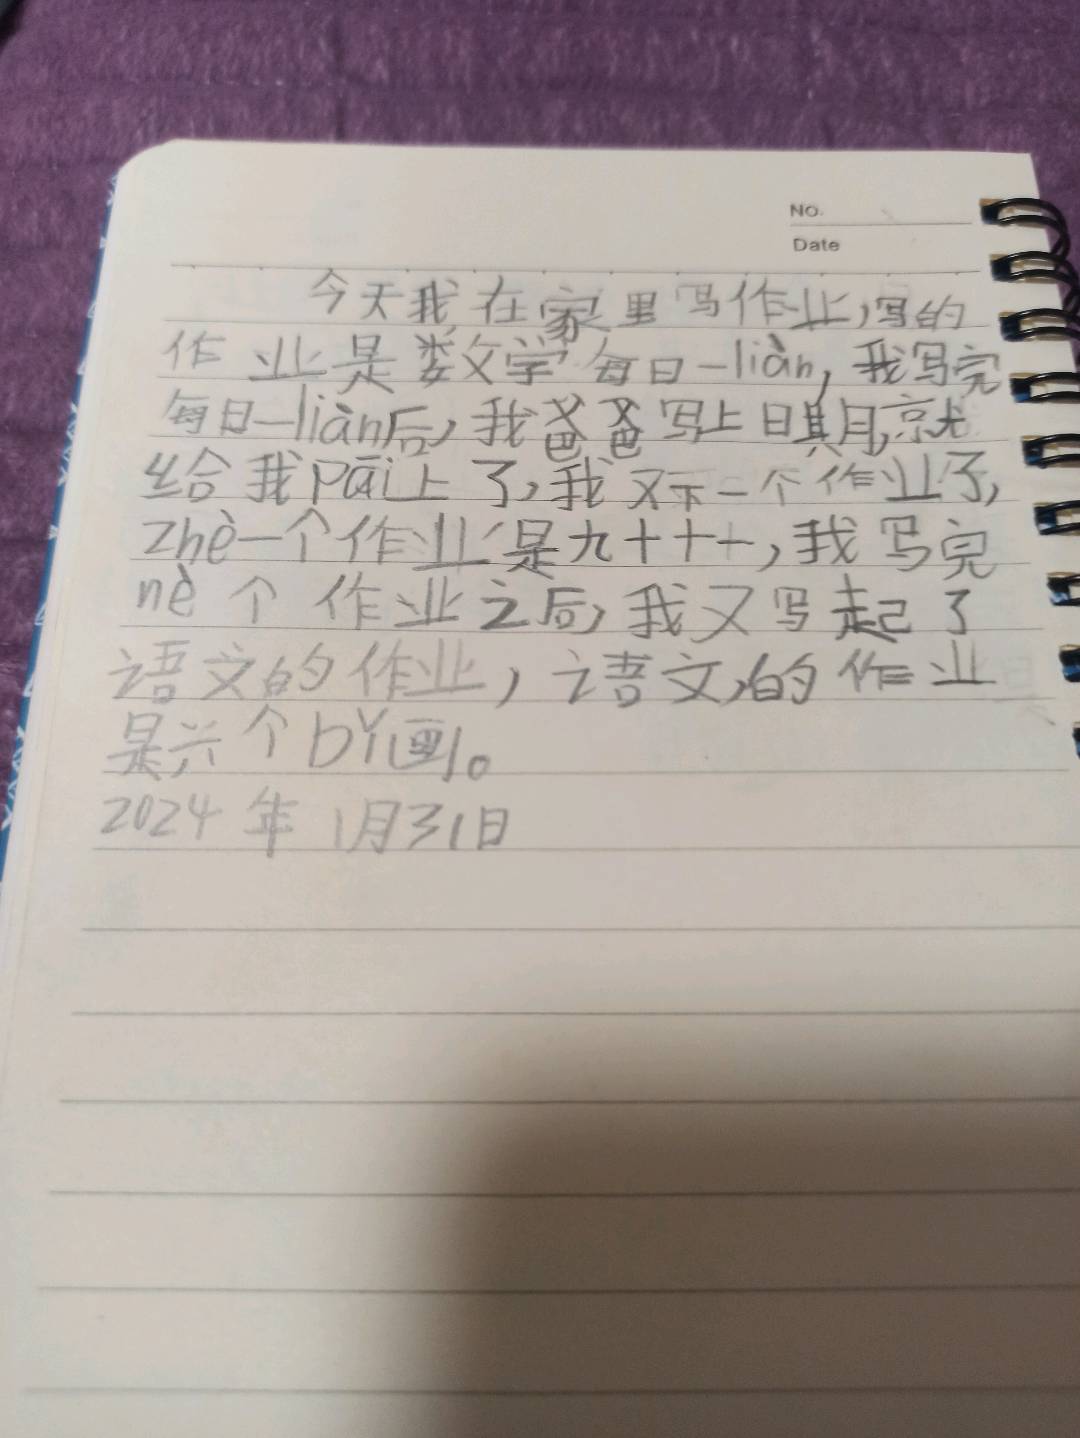 NO.
Date
今天我在家里写作业,写的
作业是数学每日一liàn,我写完
每日一liàn后,我爸爸写上日期,就
给我pāi上了,我又下一个作业了,
zhè一个作业是九十十一,我写完
nè个作业之后,我又写起了
语文的作业,语文的作业
是兴个bǐ画。
2024年1月31日